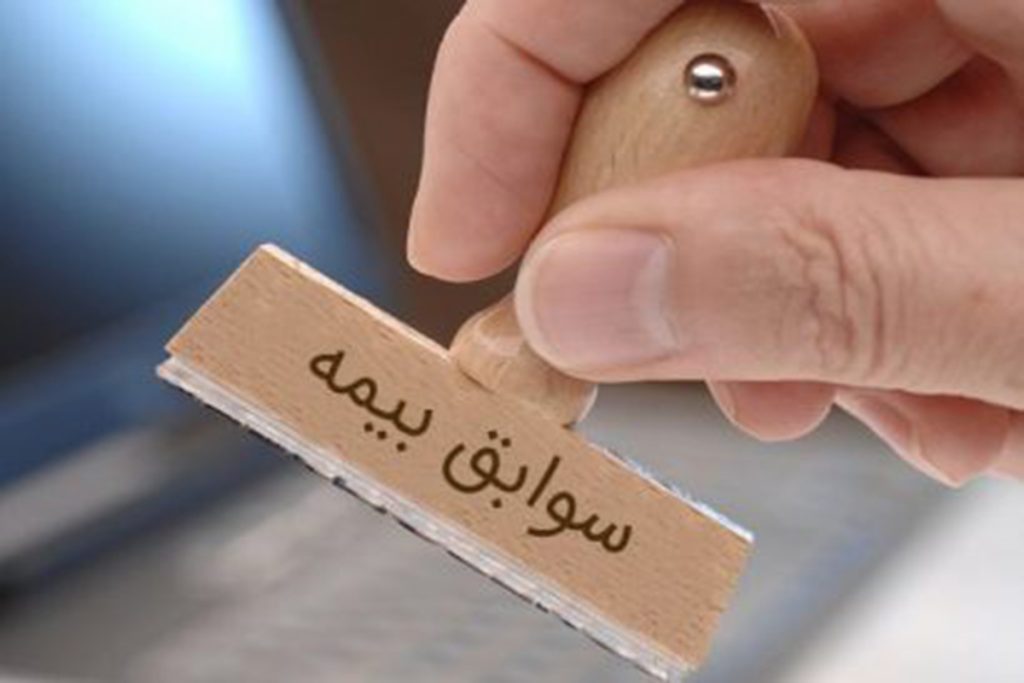 سوابق بیمه